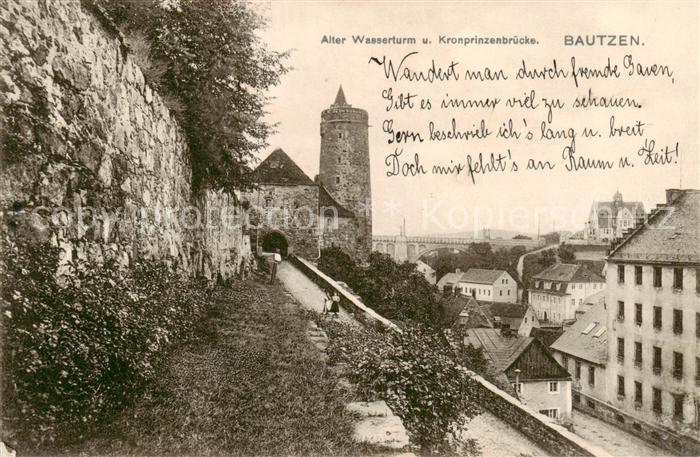 Alter Wasserturm u. Kronprinzenbrücke. BAUTZEN.
Wandert man durch fremde Gauen,
Gibt es immer viel zu schauen.
Gern beschrieb ich's lang u. breit
Doch mir fehlt's an Raum u. Zeit!
copy-protection Kopierschutz